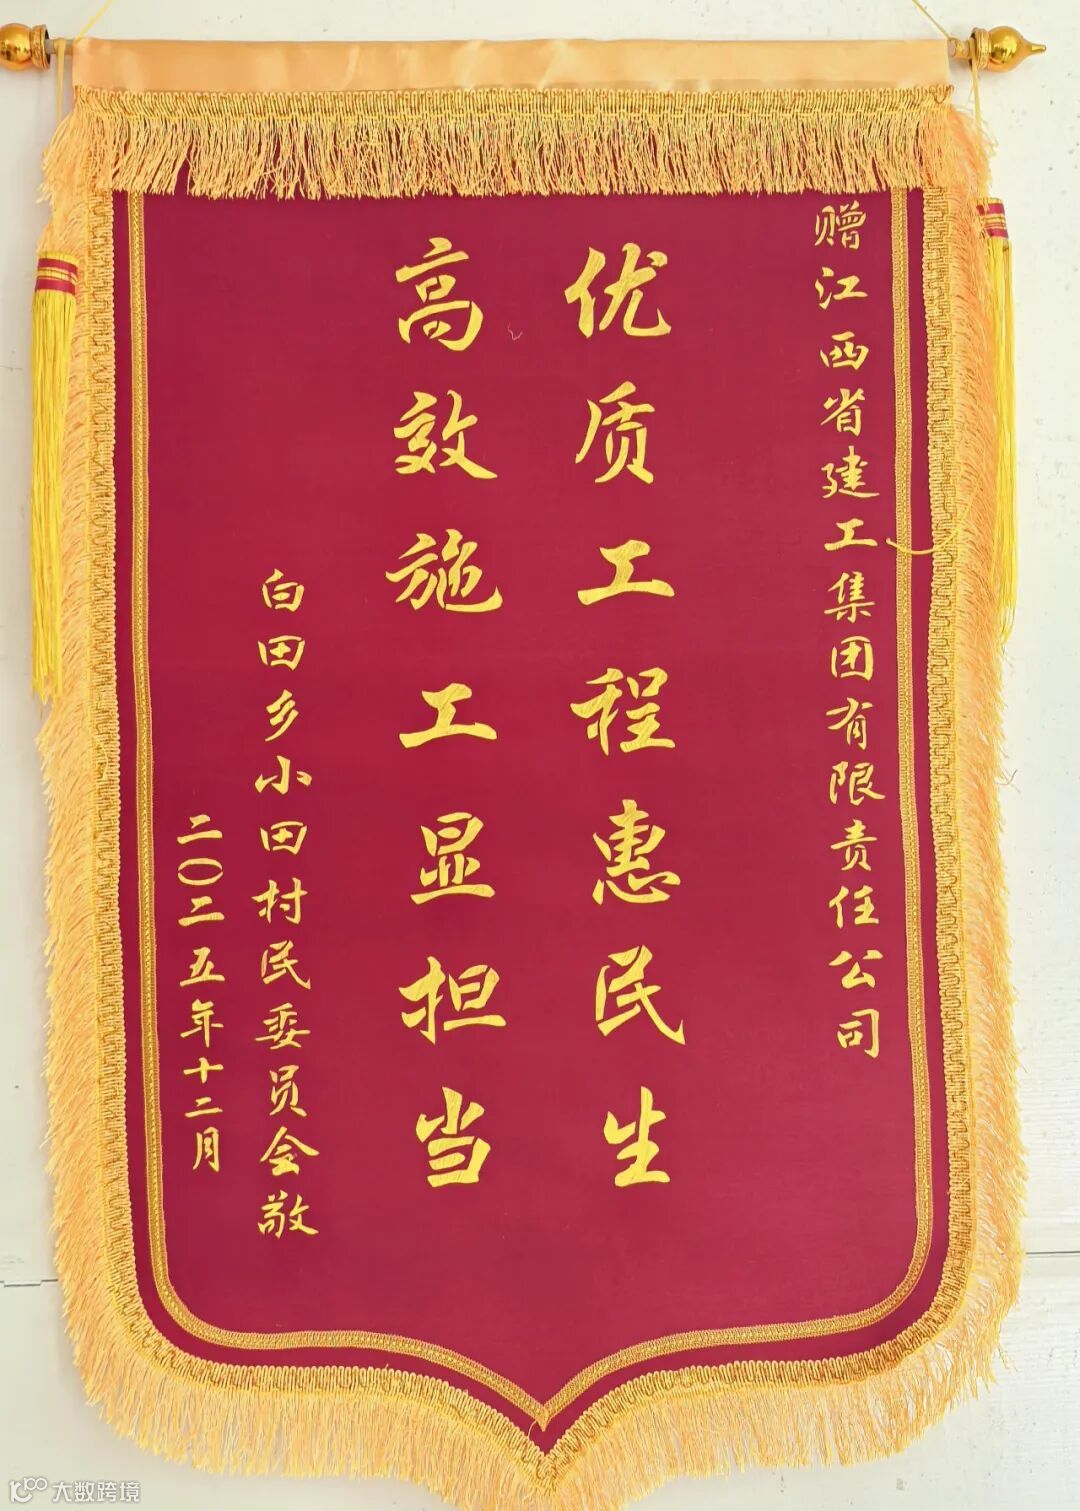 赠江西省建工集团有限责任公司
优质工程惠民生
高效施工显担当
白田乡小田村民委员会敬
二〇二五年十二月
大数跨境